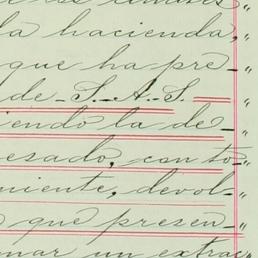 la hacienda, "
que ha pre- "
de S. A. S. "
iendo la de- "
esado, con to- "
niente, devol- "
que presen- "
nar un extrac "